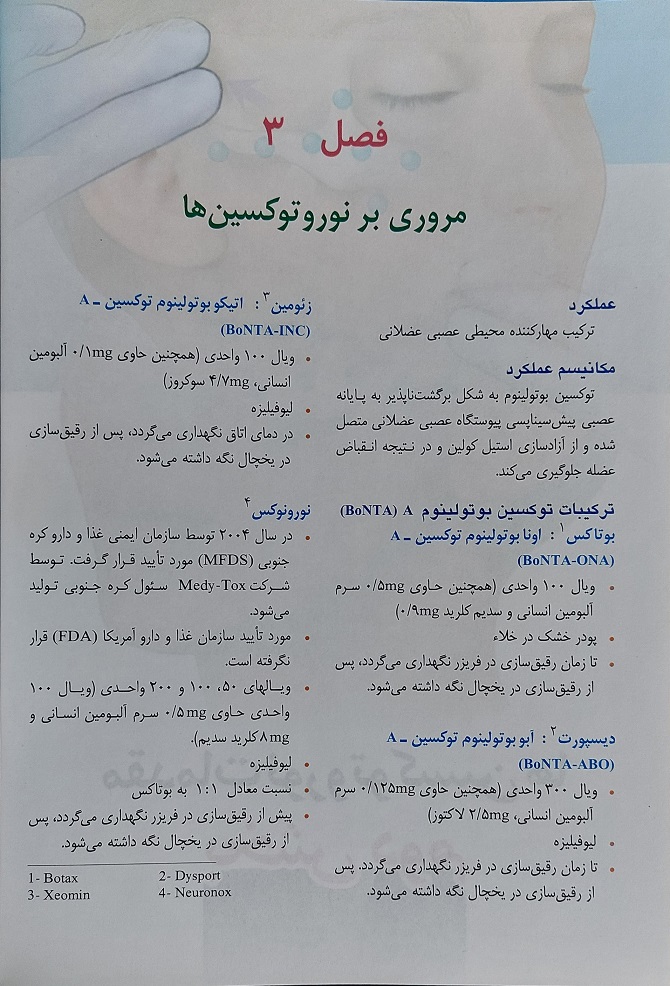 فصل ۳
مروری بر نوروتوکسین‌ها
عملکرد
ترکیب مهارکننده محیطی عصبی عضلانی
مکانیسم عملکرد
توکسین بوتولینوم به شکل برگشت‌ناپذیر به پایانه
عصبی پیش‌سیناپسی پیوستگاه عصبی عضلانی متصل
شده و از آزادسازی استیل کولین و در نتیجه انقباض
عضله جلوگیری می‌کند.
ترکیبات توکسین بوتولینوم A (BoNTA)
بوتاکس۱: اونا بوتولینوم توکسین ـ A
(BoNTA-ONA)
• ویال ۱۰۰ واحدی (همچنین حاوی ۰/۵mg سرم
آلبومین انسانی و سدیم کلرید ۰/۹mg)
• پودر خشک در خلاء
• تا زمان رقیق‌سازی در فریزر نگهداری می‌گردد، پس
از رقیق‌سازی در یخچال نگه داشته می‌شود.
دیسپورت۲: آبو بوتولینوم توکسین ـ A
(BoNTA-ABO)
• ویال ۳۰۰ واحدی (همچنین حاوی ۰/۱۲۵mg سرم
آلبومین انسانی، ۲/۵mg لاکتوز)
• لیوفیلیزه
• تا زمان رقیق‌سازی در فریزر نگهداری می‌گردد. پس
از رقیق‌سازی در یخچال نگه داشته می‌شود.
زئومین۳: اتیکو بوتولینوم توکسین ـ A
(BoNTA-INC)
• ویال ۱۰۰ واحدی (همچنین حاوی ۰/۱mg آلبومین
انسانی، ۴/۷mg سوکروز)
• لیوفیلیزه
• در دمای اتاق نگهداری می‌گردد، پس از رقیق‌سازی
در یخچال نگه داشته می‌شود.
نورونوکس۴
• در سال ۲۰۰۴ توسط سازمان ایمنی غذا و دارو کره
جنوبی (MFDS) مورد تأیید قرار گرفت. توسط
شرکت Medy-Tox سئول کره جنوبی تولید
می‌شود.
• مورد تأیید سازمان غذا و دارو آمریکا (FDA) قرار
نگرفته است.
• ویالهای ۵۰، ۱۰۰ و ۲۰۰ واحدی (ویال ۱۰۰
واحدی حاوی ۰/۵mg سرم آلبومین انسانی و
۸mg کلرید سدیم).
• لیوفیلیزه
• نسبت معادل ۱:۱ به بوتاکس
• پیش از رقیق‌سازی در فریزر نگهداری می‌گردد، پس
از رقیق‌سازی در یخچال نگه داشته می‌شود.
1- Botax 2- Dysport
3- Xeomin 4- Neuronox